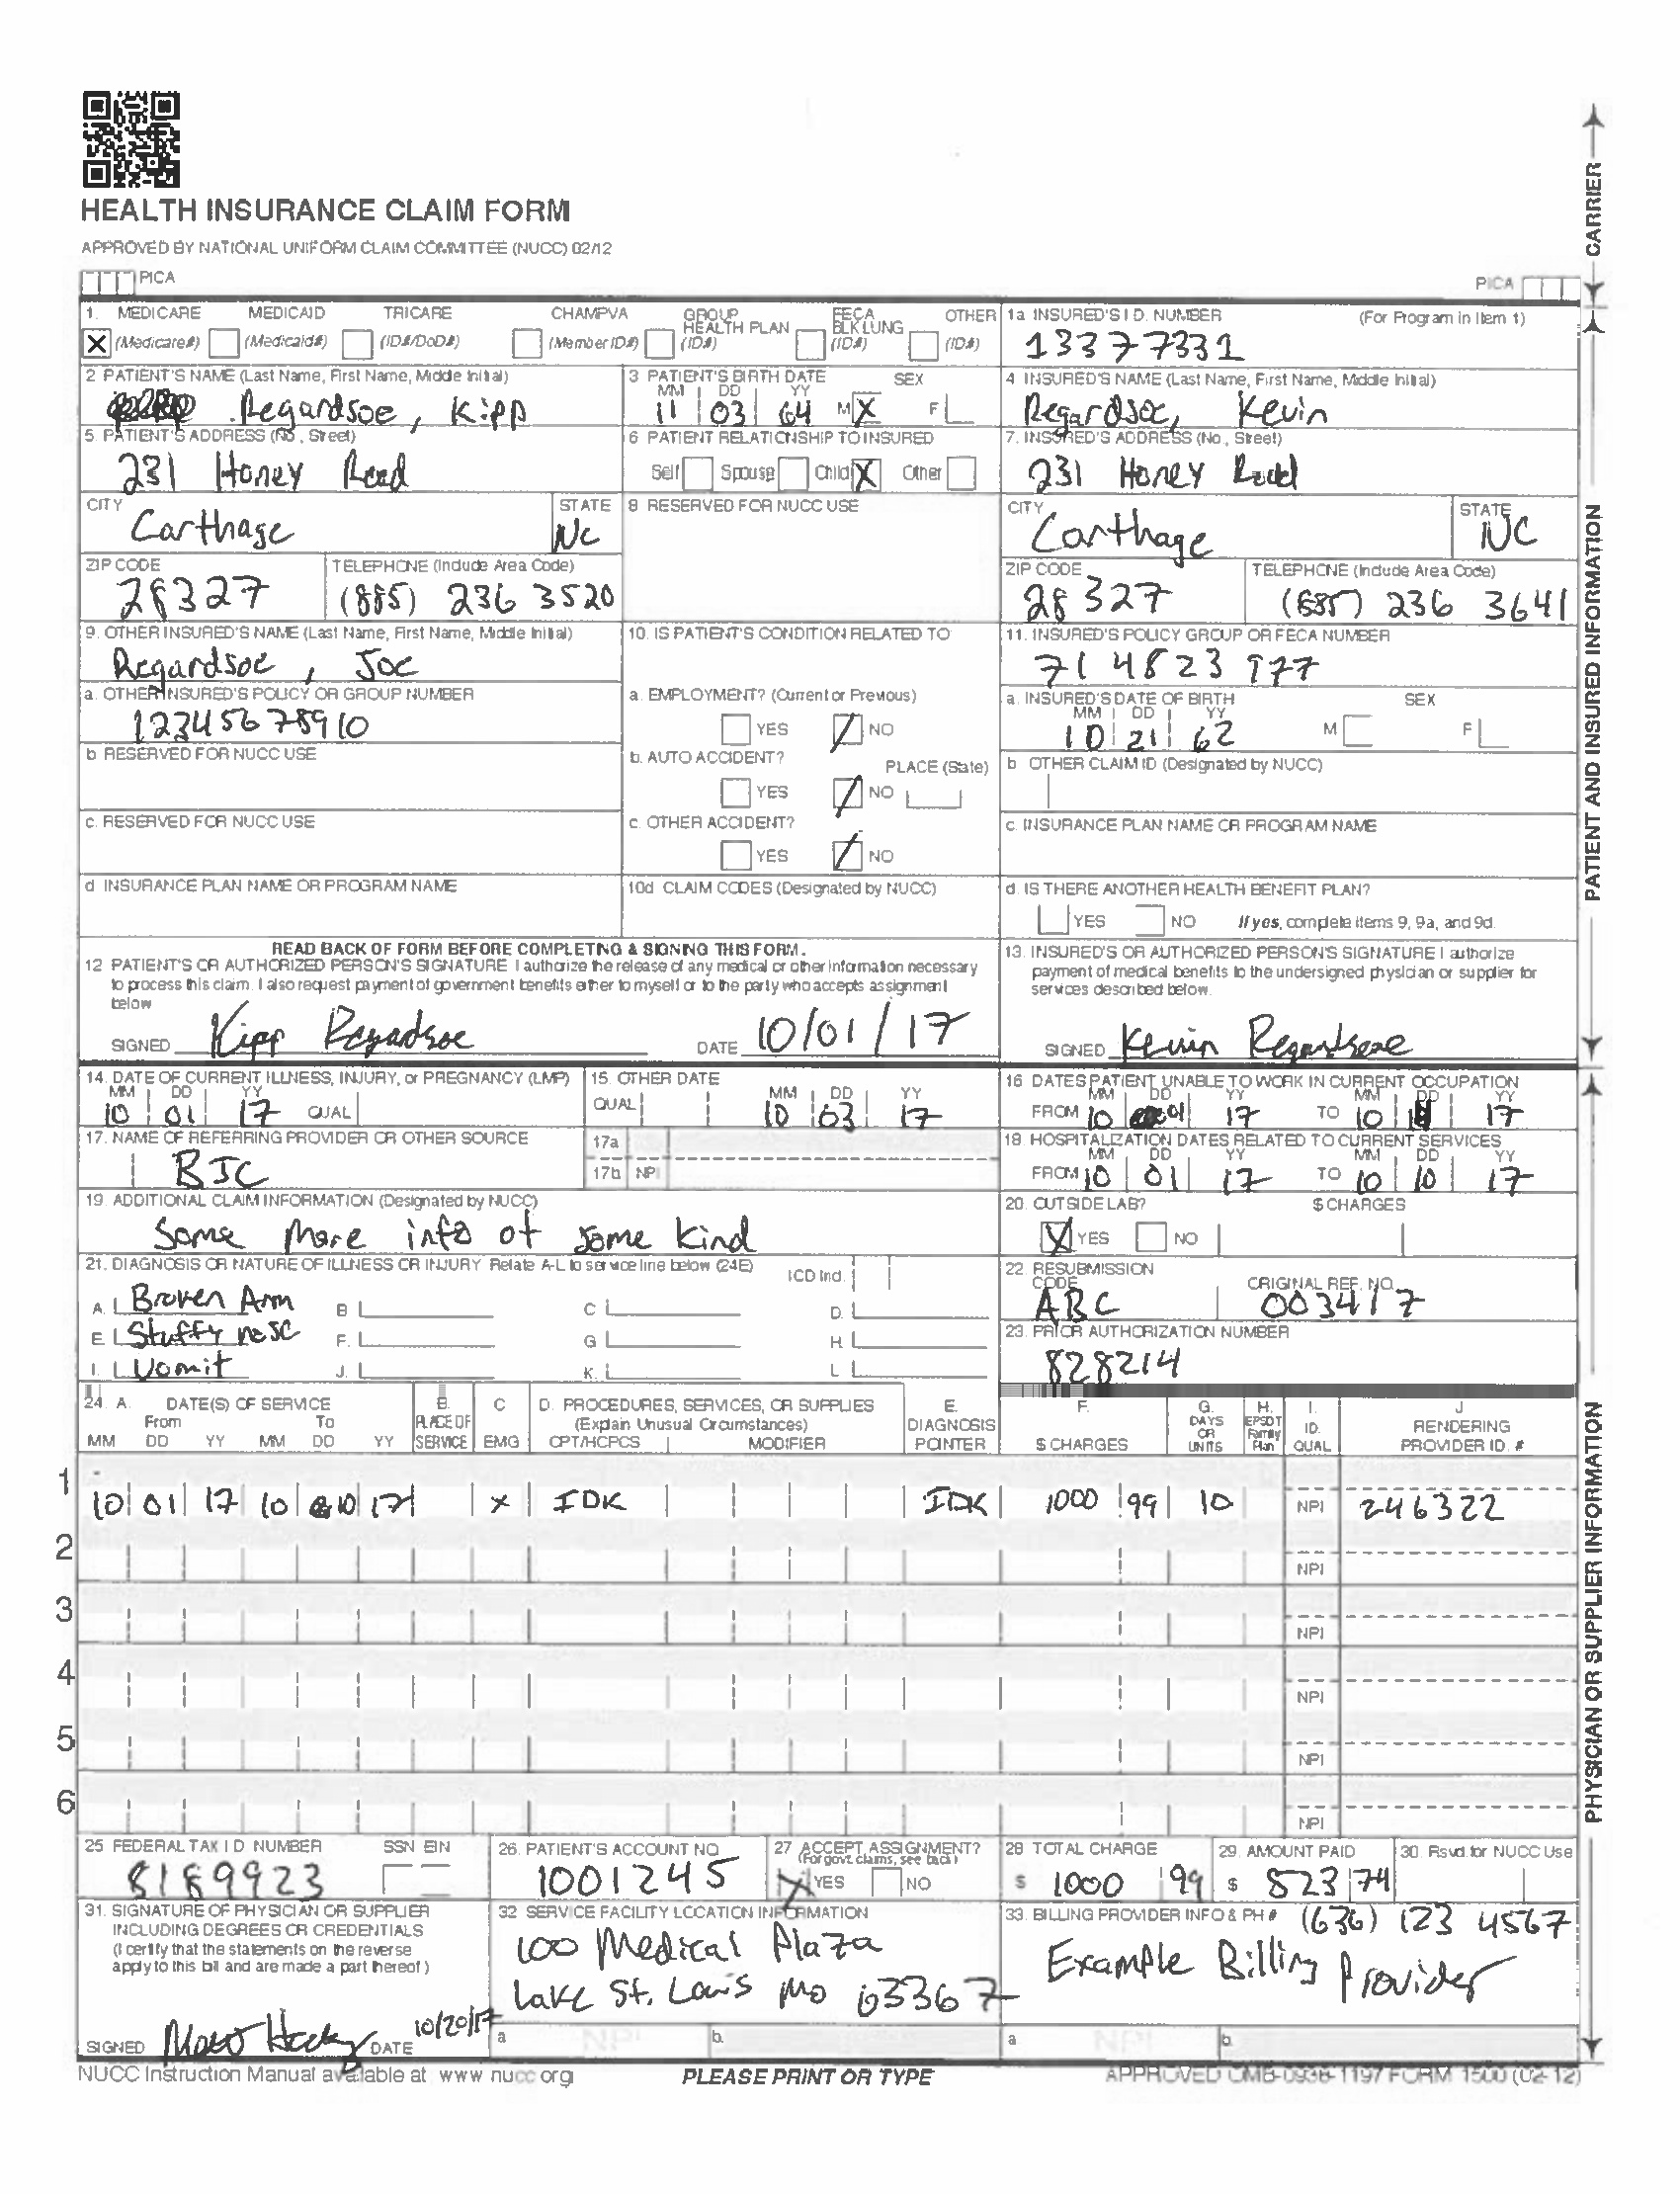 HEALTH INSURANCE CLAIM FORM
APPROVED BY NATIONAL UNIFORM CLAIM COMMITTEE (NUCC) 02/12
PICA
PICA
CARRIER
1. MEDICARE MEDICAID TRICARE CHAMPVA GROUP HEALTH PLAN FECA BLK LUNG OTHER
X (Medicare#) (Medicaid#) (ID#/DoD#) (Member ID#) (ID#) (ID#) (ID#)
1a INSURED'S I.D. NUMBER (For Program in Item 1)
13377331
2 PATIENT'S NAME (Last Name, First Name, Middle Initial)
Regardsoe, Kipp
3 PATIENT'S BIRTH DATE SEX
MM DD YY
11 03 64 M X F
4 INSURED'S NAME (Last Name, First Name, Middle Initial)
Regardsoe, Kevin
5. PATIENT'S ADDRESS (No., Street)
231 Honey Road
6 PATIENT RELATIONSHIP TO INSURED
Self Spouse Child X Other
7. INSURED'S ADDRESS (No., Street)
231 Honey Road
CITY STATE
Carthage NC
8 RESERVED FOR NUCC USE
CITY STATE
Carthage NC
ZIP CODE TELEPHONE (Include Area Code)
28327 (885) 236 3520
ZIP CODE TELEPHONE (Include Area Code)
28327 (885) 236 3641
9. OTHER INSURED'S NAME (Last Name, First Name, Middle Initial)
Regardsoe, Joe
10. IS PATIENT'S CONDITION RELATED TO
11. INSURED'S POLICY GROUP OR FECA NUMBER
71 4823 977
a. OTHER INSURED'S POLICY OR GROUP NUMBER
12345678910
a. EMPLOYMENT? (Current or Previous)
YES NO
a. INSURED'S DATE OF BIRTH SEX
MM DD YY
10 21 62 M F
b RESERVED FOR NUCC USE
b. AUTO ACCIDENT? PLACE (State)
YES NO
b OTHER CLAIM ID (Designated by NUCC)
c. RESERVED FOR NUCC USE
c. OTHER ACCIDENT?
YES NO
c. INSURANCE PLAN NAME OR PROGRAM NAME
d INSURANCE PLAN NAME OR PROGRAM NAME
10d CLAIM CODES (Designated by NUCC)
d. IS THERE ANOTHER HEALTH BENEFIT PLAN?
YES NO If yes, complete items 9, 9a, and 9d.
PATIENT AND INSURED INFORMATION
READ BACK OF FORM BEFORE COMPLETING & SIGNING THIS FORM.
12 PATIENT'S OR AUTHORIZED PERSON'S SIGNATURE I authorize the release of any medical or other information necessary
to process this claim. I also request payment of government benefits either to myself or to the party who accepts assignment
below
SIGNED Kipp Regardsoe DATE 10/01/17
13. INSURED'S OR AUTHORIZED PERSON'S SIGNATURE I authorize
payment of medical benefits to the undersigned physician or supplier for
services described below.
SIGNED Kevin Regardsoe
14. DATE OF CURRENT ILLNESS, INJURY, or PREGNANCY (LMP)
MM DD YY
10 01 17 QUAL
15. OTHER DATE
QUAL MM DD YY
10 03 17
16 DATES PATIENT UNABLE TO WORK IN CURRENT OCCUPATION
MM DD YY MM DD YY
FROM 10 01 17 TO 10 17
17. NAME OF REFERRING PROVIDER OR OTHER SOURCE
BJC
17a
17b NPI
18 HOSPITALIZATION DATES RELATED TO CURRENT SERVICES
MM DD YY MM DD YY
FROM 10 01 17 TO 10 10 17
19. ADDITIONAL CLAIM INFORMATION (Designated by NUCC)
Some more info of some kind
20. OUTSIDE LAB? $ CHARGES
X YES NO
21. DIAGNOSIS OR NATURE OF ILLNESS OR INJURY Relate A-L to service line below (24E) ICD Ind.
A. Broken Arm B C D.
E Stuffy nose F. G H.
I. Vomit J. K. L
22. RESUBMISSION CODE ORIGINAL REF. NO.
ABC 003417
23. PRIOR AUTHORIZATION NUMBER
828214
24. A. DATE(S) OF SERVICE B. PLACE OF SERVICE C EMG D. PROCEDURES, SERVICES, OR SUPPLIES E. DIAGNOSIS POINTER F. $ CHARGES G. DAYS OR UNITS H. EPSDT Family Plan I. ID. QUAL J RENDERING PROVIDER ID. #
From To (Explain Unusual Circumstances)
MM DD YY MM DD YY CPT/HCPCS MODIFIER
1 10 01 17 10 10 17 X IDK IDK 1000 99 10 NPI 246322
2 NPI
3 NPI
4 NPI
5 NPI
6 NPI
PHYSICIAN OR SUPPLIER INFORMATION
25 FEDERAL TAX I.D. NUMBER SSN EIN
8189923
26. PATIENT'S ACCOUNT NO
1001245
27 ACCEPT ASSIGNMENT?
(For govt. claims, see back)
X YES NO
28 TOTAL CHARGE
$ 1000 99
29. AMOUNT PAID
$ 823 74
30. Rsvd. for NUCC Use
31. SIGNATURE OF PHYSICIAN OR SUPPLIER
INCLUDING DEGREES OR CREDENTIALS
(I certify that the statements on the reverse
apply to this bill and are made a part thereof.)
SIGNED DATE 10/20/17
32 SERVICE FACILITY LOCATION INFORMATION
100 Medical Plaza
Lake St. Louis Mo 63367
a NPI b.
33. BILLING PROVIDER INFO & PH # (636) 123 4567
Example Billing Provider
a NPI b.
NUCC Instruction Manual available at www nucc org
PLEASE PRINT OR TYPE
APPROVED OMB-0938-1197 FORM 1500 (02-12)